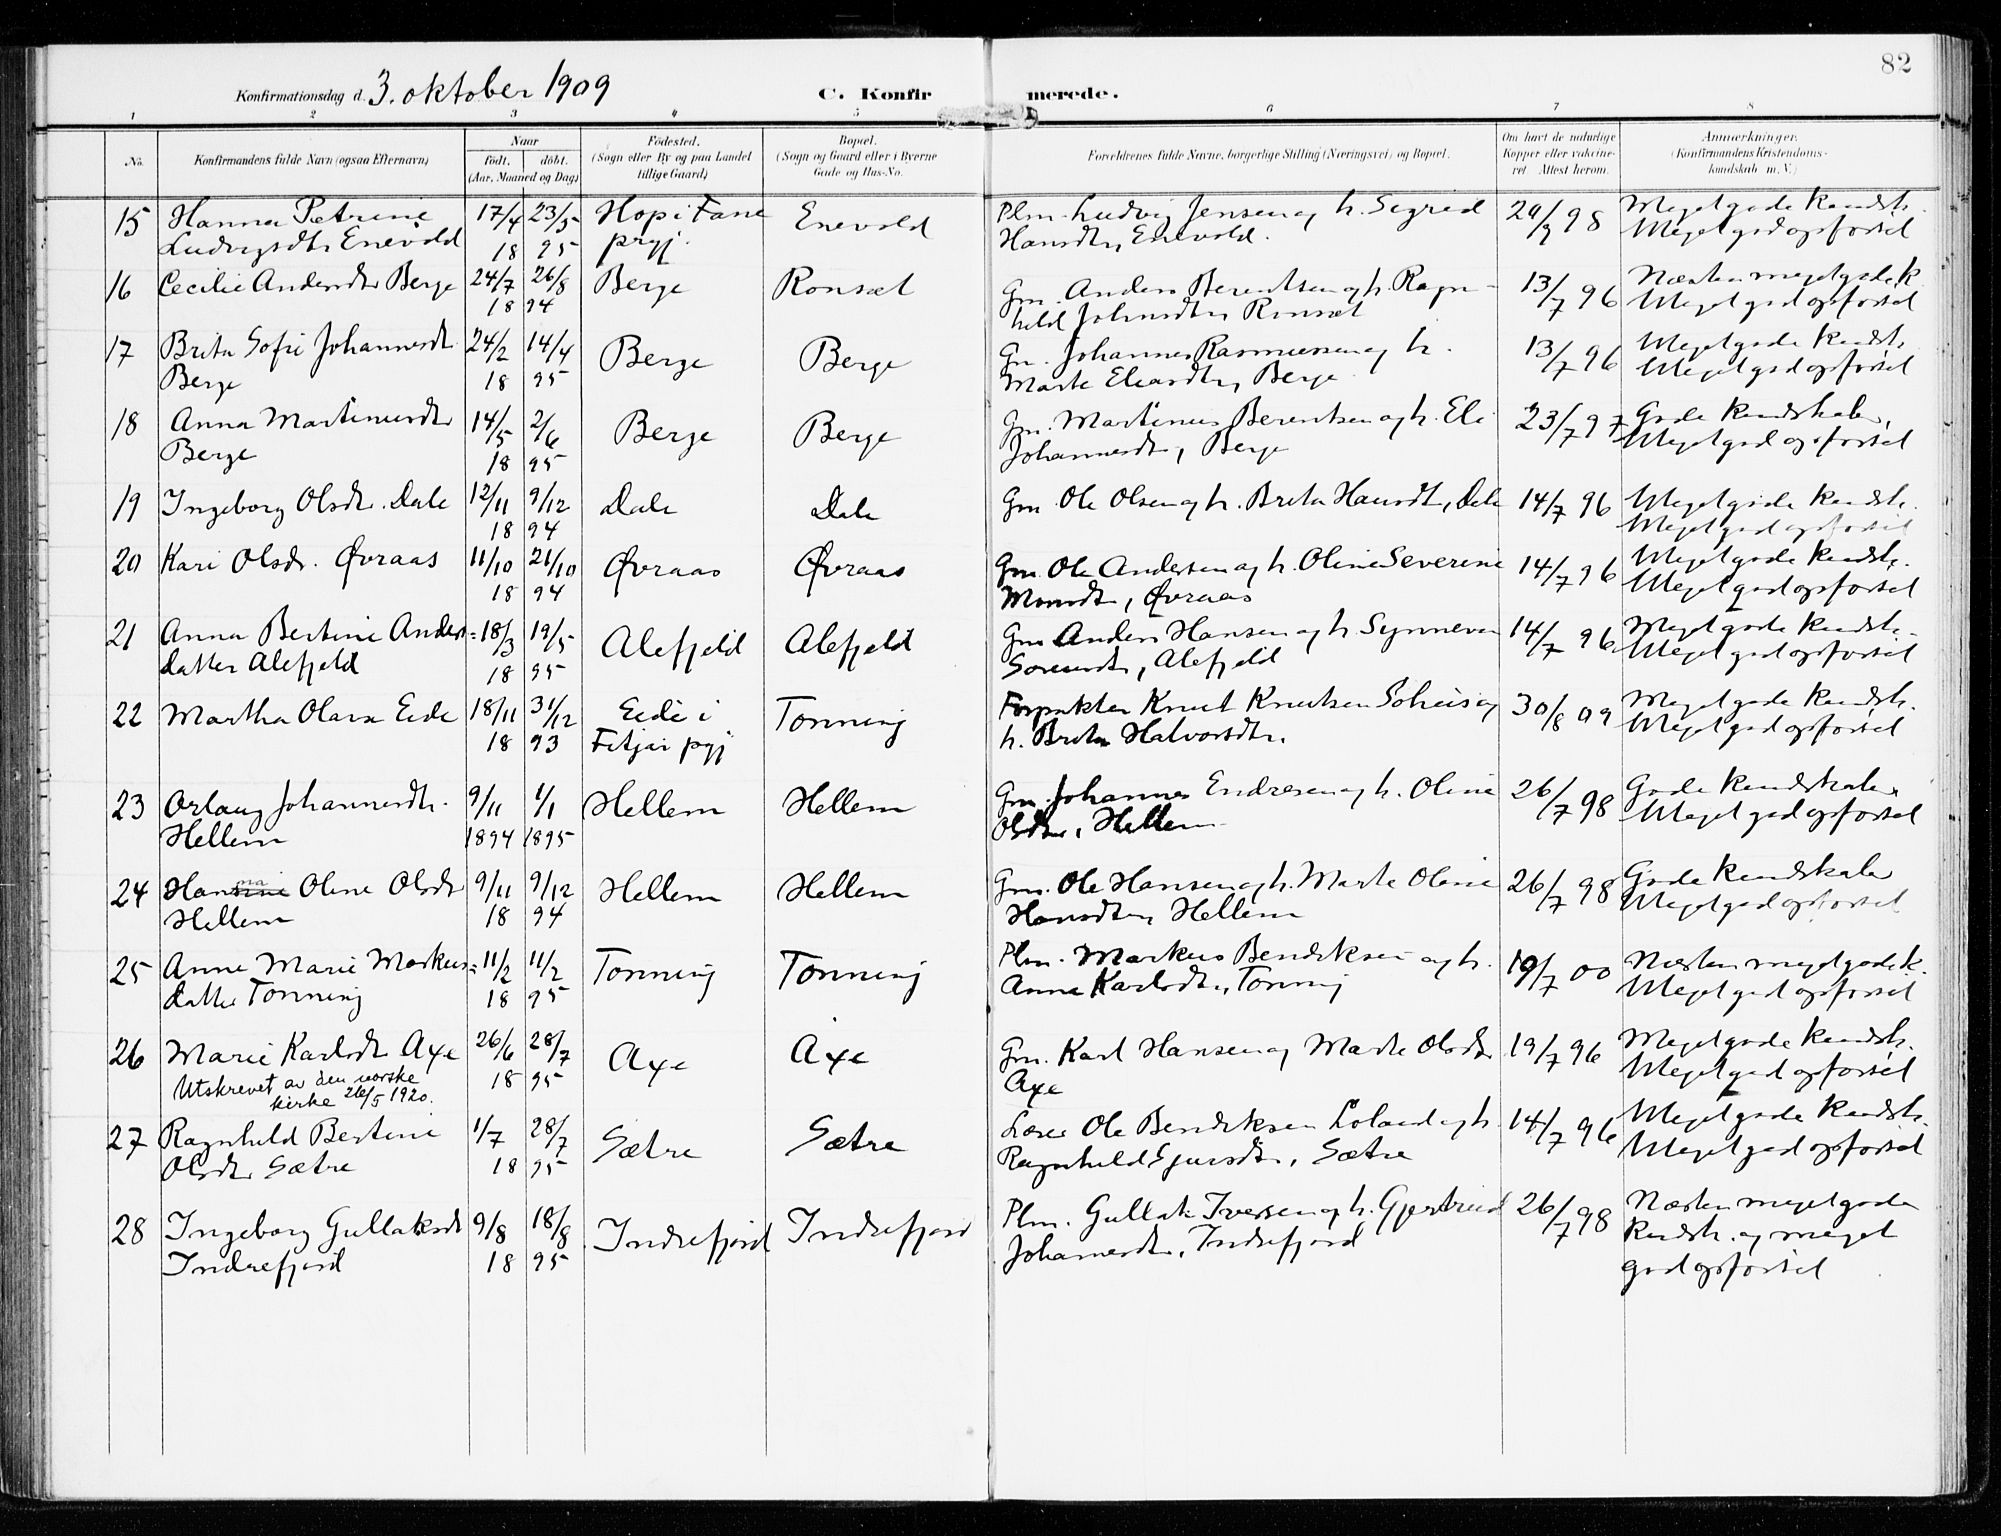 82
Konfirmationsdag d. 3. oktober 1909
C. Konfirmerede.
1 2 3 4 5 6 7 8
No.
Konfirmandens fulde Navn (ogsaa Efternavn)
Naar
født. døbt.
(Aar, Maaned og Dag)
Fødested.
(Sogn eller By og paa Landet
tillige Gaard)
Bopæl.
(Sogn og Gaard eller i Byerne
Gade og Hus-No.
Forældrenes fulde Navne, borgerlige Stilling (Næringsvei) og Bopæl.
Om havt de naturlige
Kopper eller vakcine-
ret Attest herom.
Anmærkninger.
(Konfirmandens Kristendoms-
kundskab m. V.)
15 Hanna Petrine 17/4 23/5 Hop i Fane Enevold Plm. Ludvig Jensen og h. Sigrid 29/9 98 Meget gode kundsk.
Ludvigsdtr Enevold 18 95 prgj. Hansdtr, Enevold. Meget god opførsel
16 Cecilie Andersdtr Berge 24/7 26/8 Berge Ronsæt Gm. Anders Berentsen og h. Ragn- 13/7 96 Næsten meget gode k
18 94 hild Johnsdtr, Ronsæt Meget god opførsel
17 Brita Sofie Johannesdt 24/2 14/4 Berge Berge Gm. Johannes Rasmussen og h. 13/7 96 Meget gode kundsk.
Berge 18 95 Marte Eliasdtr, Berge Meget god opførsel
18 Anna Martinusdtr 14/5 2/6 Berge Berge Gm. Martinus Berentsen og h. Eli 23/7 97 Gode kundskaber,
Berge 18 95 Johannesdtr, Berge Meget god opførsel
19 Ingeborg Olsdtr. Dale 12/11 9/12 Dale Dale Gm. Ole Olsen og h. Brita Hansdtr, Dale 14/7 96 Meget gode kundsk.
18 94 Meget god opførsel
20 Kari Olsdr. Øvraas 11/10 21/10 Øvraas Øvraas Gm. Ole Andersen og h. Oline Severine 14/7 96 Meget gode kundsk.
18 94 Monsdtr, Øvraas Meget god opførsel
21 Anna Bertine Anders= 18/3 19/5 Alefjeld Alefjeld Gm Anders Hansen og h. Synneva 14/7 96 Meget gode kundsk.
datter Alefjeld 18 95 Sørensdtr, Alefjeld Meget god opførsel
22 Martha Olava Eide 18/11 31/12 Eide i Tonning Forpakter Knut Knutsen og 30/8 09 Meget gode kundsk.
18 93 Fitjar pgj h. Brita Halvorsdtr. Meget god opførsel
23 Orlaug Johannesdtr. 9/11 1/1 Hellem Hellem Gm. Johannes Endresen og h. Oline 26/7 98 Gode kundskaber
Hellem 1894 1895 Olsdtr, Hellem Meget god opførsel
24 Hansine na Oline Olsdtr 9/11 9/12 Hellem Hellem Gm. Ole Hansen og h. Marte Oline 26/7 98 Gode kundskaber
Hellem 18 94 Hansdtr, Hellem Meget god opførsel
25 Anne Marie Markus= 11/2 11/2 Tonning Tonning Plm. Markus Bendiksen og h. 19/7 00 Næsten meget gode k.
datter Tonning 18 95 Anna Karlsdtr, Tonning Meget god opførsel
26 Marie Karlsdtr Axe 26/6 28/7 Axe Axe Gm. Karl Hansen og Marte Olsdtr 19/7 96 Meget gode kundsk.
Utskrevet av den norske 18 95 Axe Meget god opførsel
kirke 26/5 1920.
27 Ragnhild Bertine 1/7 28/7 Sætre Sætre Lærer Ole Bendiksen Loland og h. 14/7 96 Meget gode kundsk.
Olsdtr Sætre 18 95 Ragnhild Sjursdtr, Sætre Meget god opførsel
28 Ingeborg Gullaksdt 9/8 18/8 Indrefjord Indrefjord Plm. Gullak Iversen og h. Gjertrud 26/7 98 Næsten meget gode
Indrefjord 18 95 Johannesdtr, Indrefjord kundsk. og meget
god opførsel